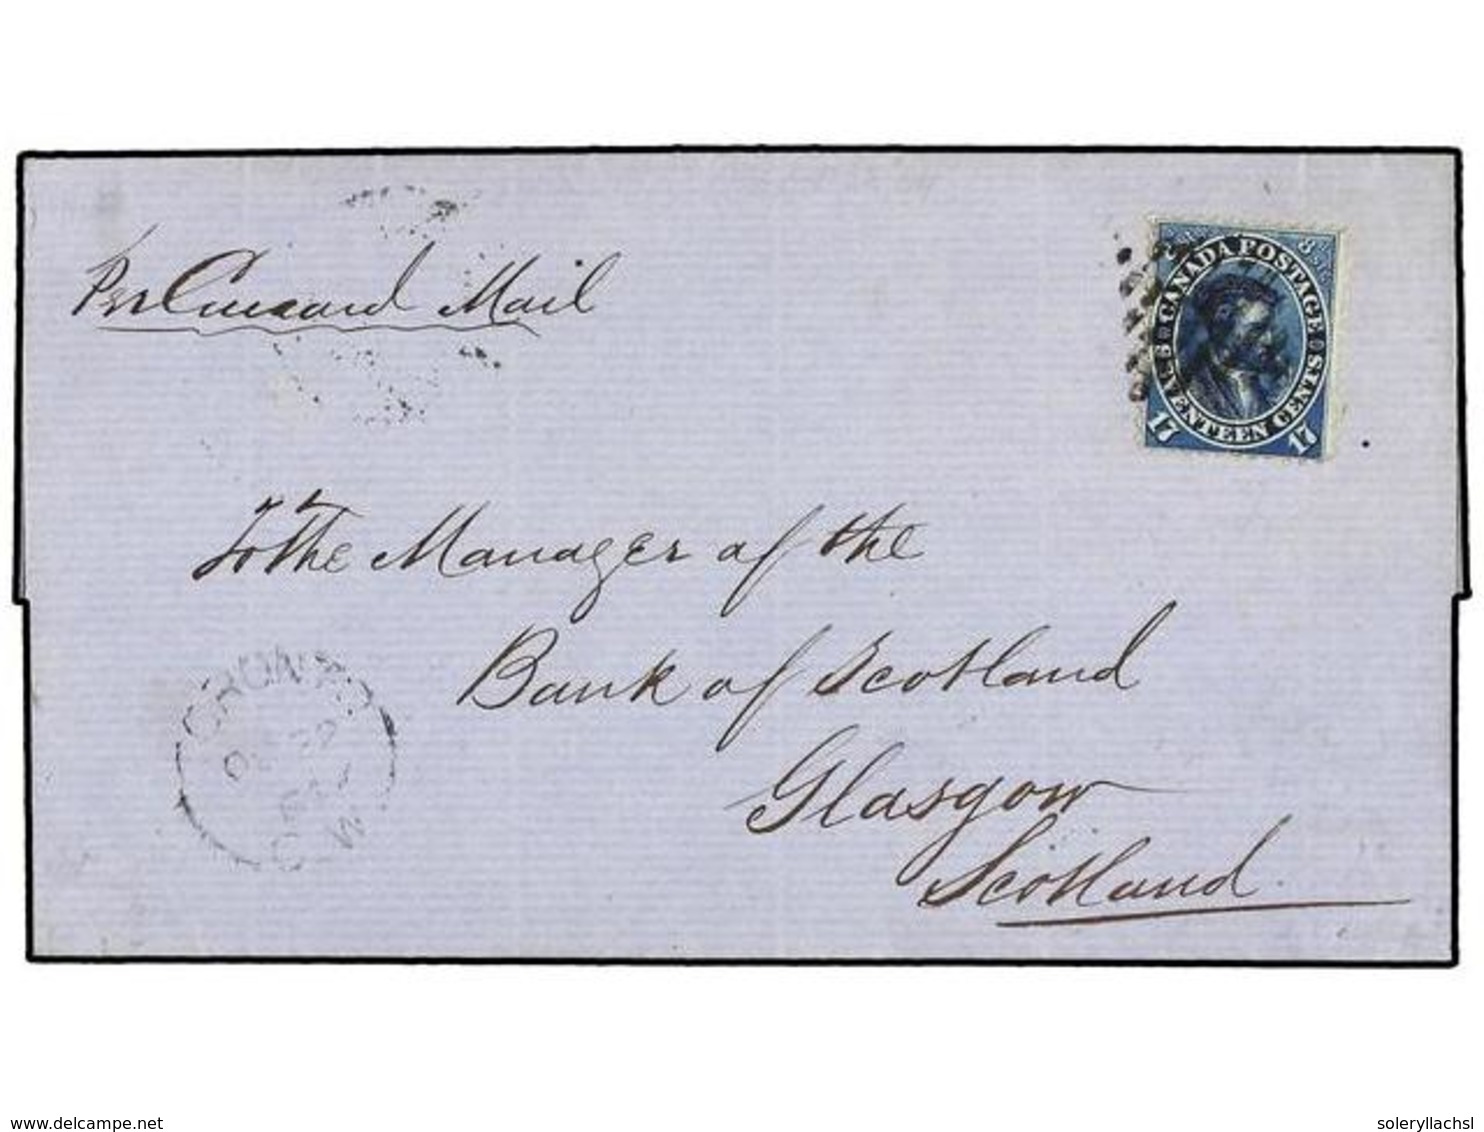 Per Cunard Mail
CANADA POSTAGE
SEVENTEEN CENTS
17 17
To the Manager of the
Bank of Scotland
Glasgow
Scotland
C.W
delcampe.net
soleryllachsl